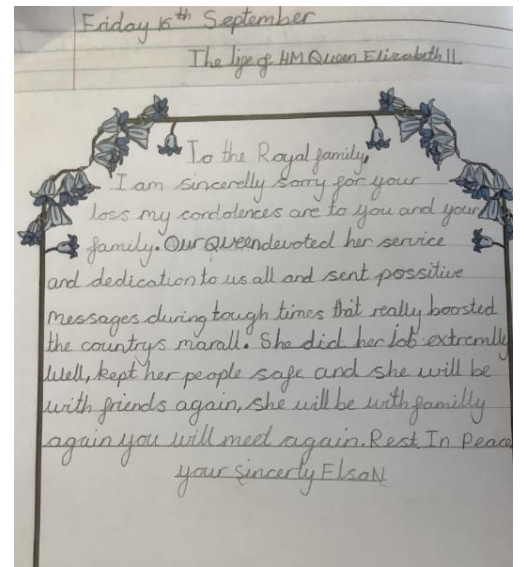 Friday 16th September
The life of HM Queen Elizabeth II.
To the Royal family,
I am sincerelly sorry for your
loss my condolences are to you and your
family. Our Queen devoted her service
and dedication to us all and sent possitive
messages during tough times that really boosted
the countrys marall. She did her job extremlly
well, kept her people safe and she will be
with friends again, she will be with familly
again you will meet again. Rest In Peace
your sincerly Elsa N